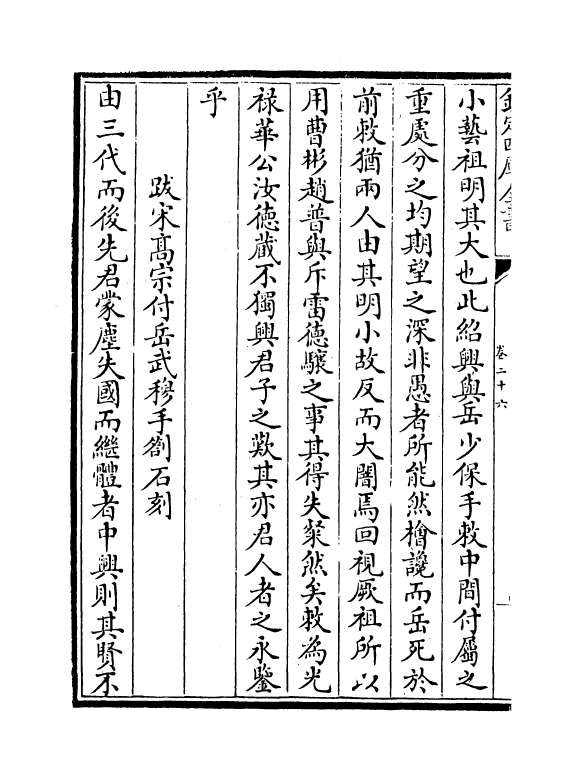 欽定四庫全書
卷二十六
小藝祖明其大也此紹興與岳少保手敕中間付屬之
重處分之均期望之深非愚者所能然檜讒而岳死於
前敕猶兩人由其明小故反而大闇焉回視厥祖所以
用曹彬趙普與斥雷德驤之事其得失粲然矣敕為光
祿華公汝徳蔵不獨興君子之歎其亦君人者之永鑒
乎
跋宋髙宗付岳武穆手劄石刻
由三代而後先君蒙塵失國而繼體者中興則其賢不